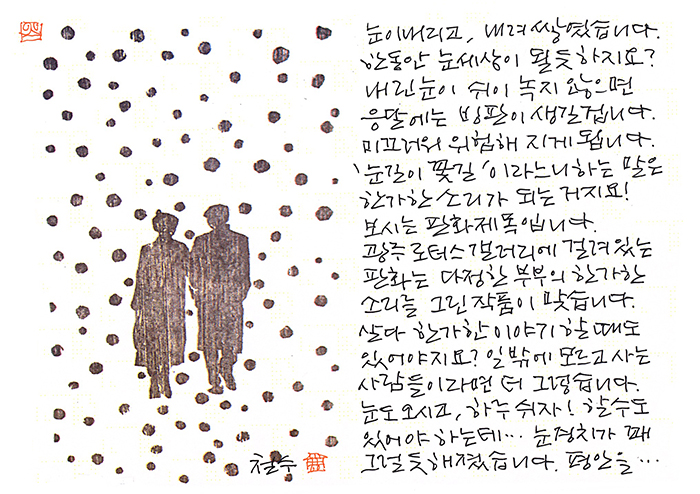 눈이 내리고, 내려 쌓였습니다.
한동안 눈세상이 될듯하지요?
내린 눈이 쉬이 녹지 않으면
응달에는 빙판이 생길겁니다.
미끄러워 위험해 지게 됩니다.
'눈길이 꽃길'이라느니하는 말은
한가한 소리가 되는 거지요!
보시는 판화제목입니다.
광주 로터스갤러리에 걸려있는
판화는 다정한 부부의 한가한
소리를 그린 작품이 맞습니다.
살다 한가한 이야기 할 때도
있어야지요? 일밖에 모르고 사는
사람들이라면 더 그렇습니다.
눈도 오시고, 하루 쉬자! 할수도
있어야 하는데… 눈경치가 꽤
그럴듯해졌습니다. 평안을…
철수